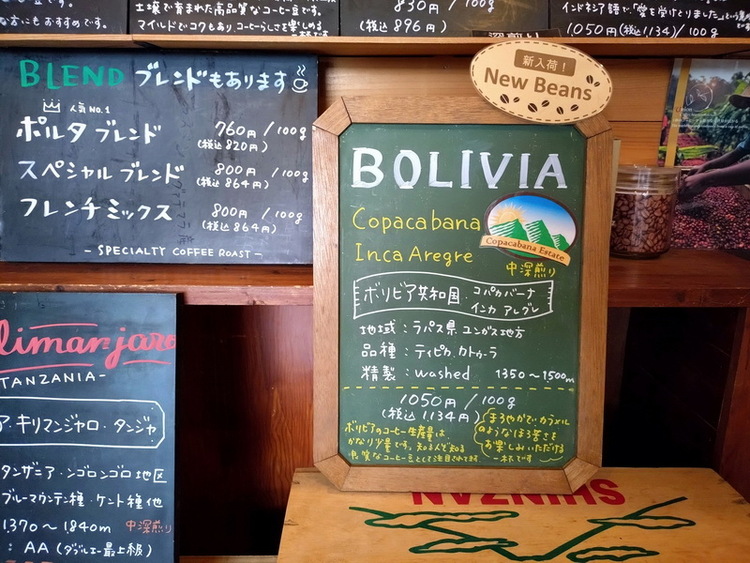 な方にもおすすめです。
土壌で育まれた高品質なコーヒー豆です。
マイルドでコクもあり、コーヒーらしさを楽しめる
830円
(税込)
896円
深煎り
インドネシア語で「愛を受けとりました」という
1,050円(税込1134)/100g
BLEND ブレンドもあります
人気NO.1
ポルタブレンド 760円/100g
(税込820円)
スペシャルブレンド 800円/100g
(税込864円)
フレンチミックス 800円/100g
(税込864円)
- SPECIALTY COFFEE ROAST -
新入荷!
New Beans
BOLIVIA
Copacabana
Inca Aregre
Copacabana Estate
中深煎り
ボリビア共和国・コパカバーナ
インカ アレグレ
地域:ラパス県ユンガス地方
品種:ティピカ.カトゥーラ
精製:washed 1350~1,500m
1050円/100g
(税込1,134円)
ボリビアのコーヒー生産量は
かなり少量です。知る人ぞ知る
良質なコーヒー豆として注目されてます。
まろやかでカラメル
のようなほろ苦さを
お楽しみいただける
一杯です
limanjaro
TANZANIA-
ア・キリマンジャロ・タンジャ
タンザニア・ンゴロンゴロ地区
ブルーマウンテン種・ケント種他
1,370~1,840m 中深煎り
:AA(ダブルエー最上級)
SHINZAN